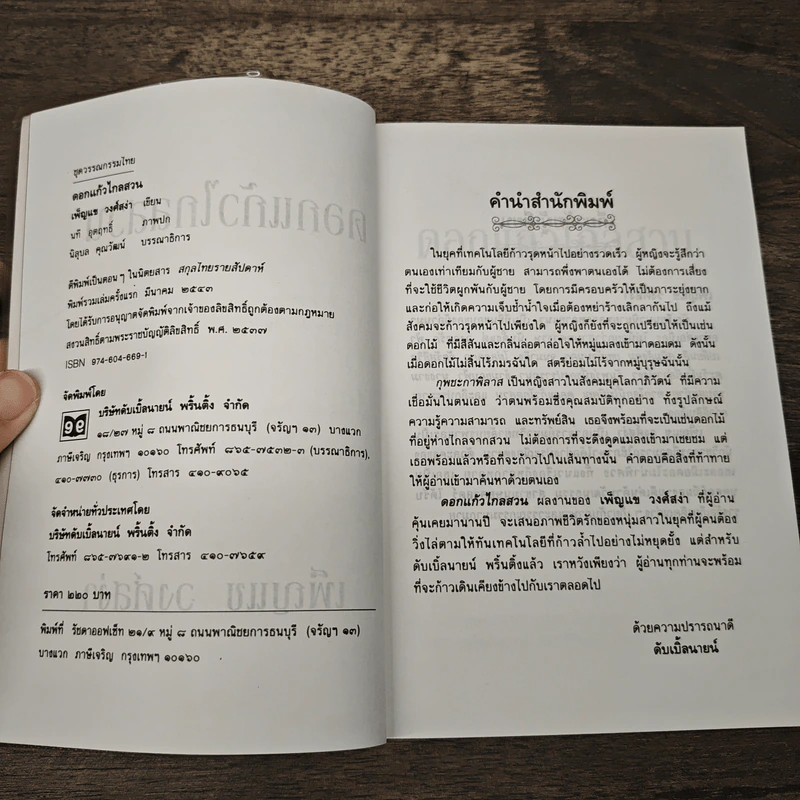 ชุดวรรณกรรมไทย
ดอกแก้วไกลสวน
เพ็ญแข วงศ์สง่า เขียน
นที อุตฤทธิ์ ภาพปก
นิลุบล คุณวัฒน์ บรรณาธิการ
ตีพิมพ์เป็นตอนๆ ในนิตยสาร สกุลไทยรายสัปดาห์
พิมพ์รวมเล่มครั้งแรก มีนาคม ๒๕๔๓
โดยได้รับการอนุญาตจัดพิมพ์จากเจ้าของลิขสิทธิ์ถูกต้องตามกฎหมาย
สงวนสิทธิ์ตามพระราชบัญญัติลิขสิทธิ์ พ.ศ. ๒๕๓๗
ISBN 974-604-669-1
จัดพิมพ์โดย
บริษัทดับเบิ้ลนายน์ พริ้นติ้ง จำกัด
๑๘/๒๗ หมู่ ๘ ถนนพาณิชยการธนบุรี (จรัญฯ ๑๓) บางแวก
ภาษีเจริญ กรุงเทพฯ ๑๐๑๖๐ โทรศัพท์ ๘๖๕-๗๕๓๒-๓ (บรรณาธิการ).
๔๑๐-๗๗๓๐ (ธุรการ) โทรสาร ๔๑๐-๙๐๖๕
จัดจำหน่ายทั่วประเทศโดย
บริษัทดับเบิ้ลนายน์ พริ้นติ้ง จำกัด
โทรศัพท์ ๘๖๕-๗๖๙๑-๒ โทรสาร ๔๑๐-๗๖๕๙
ราคา ๒๒๐ บาท
พิมพ์ที่ รัชดาออฟเซ็ท ๒๑/๙ หมู่ ๘ ถนนพาณิชยการธนบุรี (จรัญฯ ๑๓)
บางแวก ภาษีเจริญ กรุงเทพฯ ๑๐๑๖๐
คำนำสำนักพิมพ์
ในยุคที่เทคโนโลยีก้าวรุดหน้าไปอย่างรวดเร็ว ผู้หญิงจะรู้สึกว่า
ตนเองเท่าเทียมกับผู้ชาย สามารถพึ่งพาตนเองได้ ไม่ต้องการเสี่ยง
ที่จะใช้ชีวิตผูกพันกับผู้ชาย โดยการมีครอบครัวให้เป็นภาระยุ่งยาก
และก่อให้เกิดความเจ็บช้ำน้ำใจเมื่อต้องหย่าร้างเลิกลากันไป ถึงแม้
สังคมจะก้าวรุดหน้าไปเพียงใด ผู้หญิงก็ยังที่จะถูกเปรียบให้เป็นเช่น
ดอกไม้ ที่มีสีสันและกลิ่นล่อตาล่อใจให้หมู่แมลงเข้ามาดอมดม ดังนั้น
เมื่อดอกไม้ไม่สิ้นไร้ภมรฉันใด สตรีย่อมไม่ไร้จากหมู่บุรุษฉันนั้น
กุพชะกาพิลาส เป็นหญิงสาวในสังคมยุคโลกาภิวัตน์ ที่มีความ
เชื่อมั่นในตนเอง ว่าตนพร้อมซึ่งคุณสมบัติทุกอย่าง ทั้งรูปลักษณ์
ความรู้ความสามารถ และทรัพย์สิน เธอจึงพร้อมที่จะเป็นเช่นดอกไม้
ที่อยู่ห่างไกลจากสวน ไม่ต้องการที่จะดึงดูดแมลงเข้ามาเชยชม แต่
เธอพร้อมแล้วหรือที่จะก้าวไปในเส้นทางนั้น คำตอบคือสิ่งที่ท้าทาย
ให้ผู้อ่านเข้ามาค้นหาด้วยตนเอง
ดอกแก้วไกลสวน ผลงานของ เพ็ญแข วงศ์สง่า ที่ผู้อ่าน
คุ้นเคยมานานปี จะเสนอภาพชีวิตรักของหนุ่มสาวในยุคที่ผู้คนต้อง
วิ่งไล่ตามให้ทันเทคโนโลยีที่ก้าวล้ำไปอย่างไม่หยุดยั้ง แต่สำหรับ
ดับเบิ้ลนายน์ พริ้นติ้งแล้ว เราหวังเพียงว่า ผู้อ่านทุกท่านจะพร้อม
ที่จะก้าวเดินเคียงข้างไปกับเราตลอดไป
ด้วยความปรารถนาดี
ดับเบิ้ลนายน์